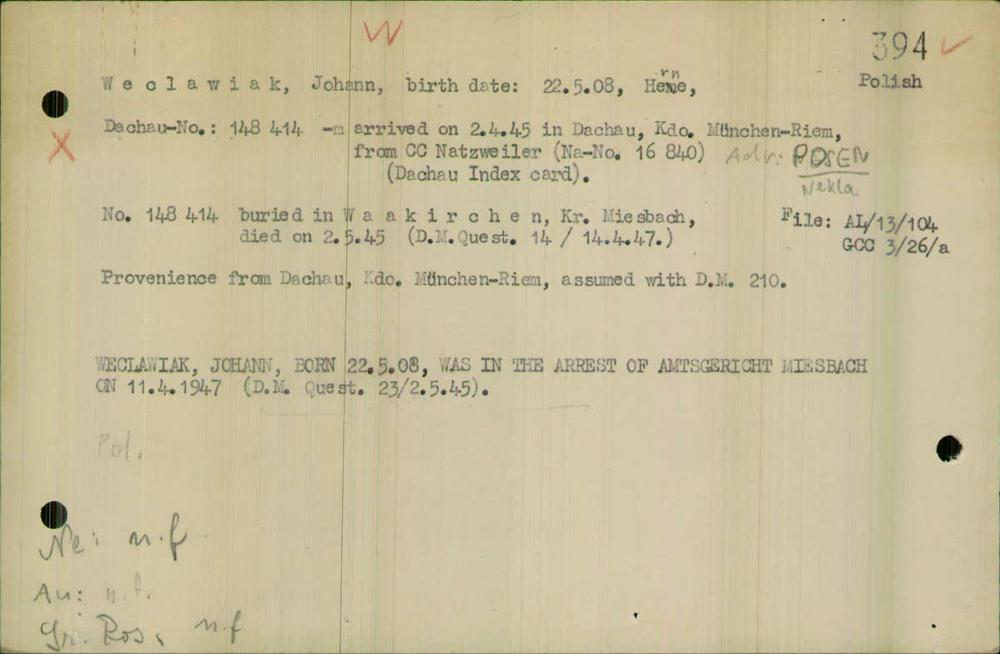 W
394 ✓
W e c l a w i a k, Johann, birth date: 22.5.08, Herne,
Polish
Dachau-No.: 148 414 -m arrived on 2.4.45 in Dachau, Kdo. München-Riem,
X
from CC Natzweiler (Na-No. 16 840) Adr: POSEN
(Dachau Index card). Nekla
No. 148 414 buried in W a a k i r c h e n, Kr. Miesbach, File: AL/13/104
died on 2.5.45 (D.M.Quest. 14 / 14.4.47.) GCC 3/26/a
Provenience from Dachau, Kdo. München-Riem, assumed with D.M. 210.
WECLAWIAK, JOHANN, BORN 22.5.08, WAS IN THE ARREST OF AMTSGERICHT MIESBACH
ON 11.4.1947 (D.M. Quest. 23/2.5.45).
Pol.
Ne: n.f
Au: n.f.
Gr. Ros. nf